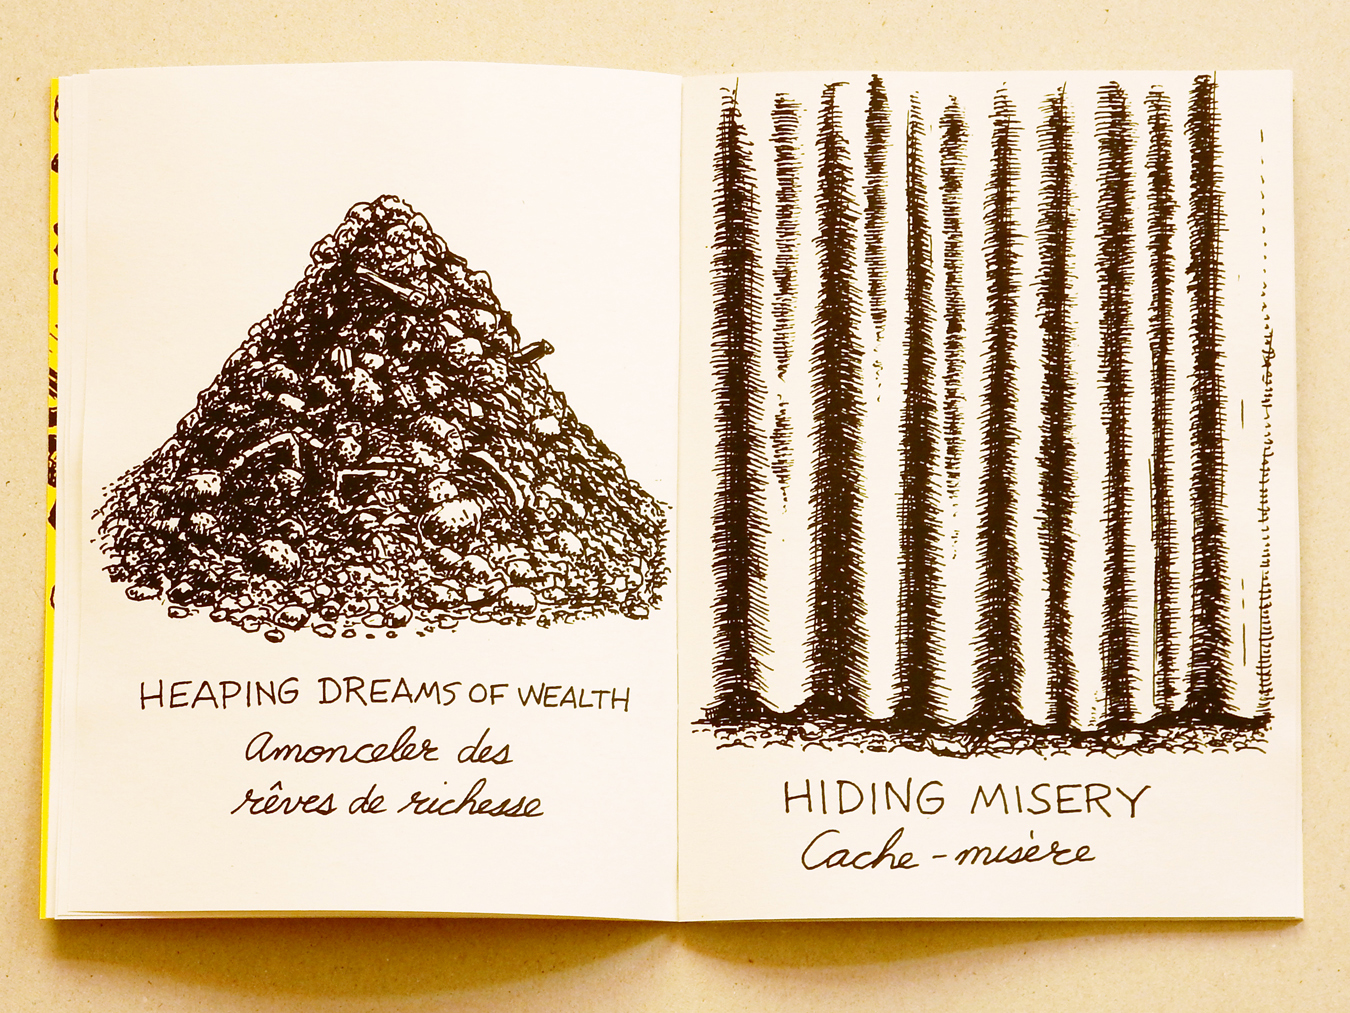 HEAPING DREAMS OF WEALTH
Amonceler des
rêves de richesse
HIDING MISERY
Cache-misère